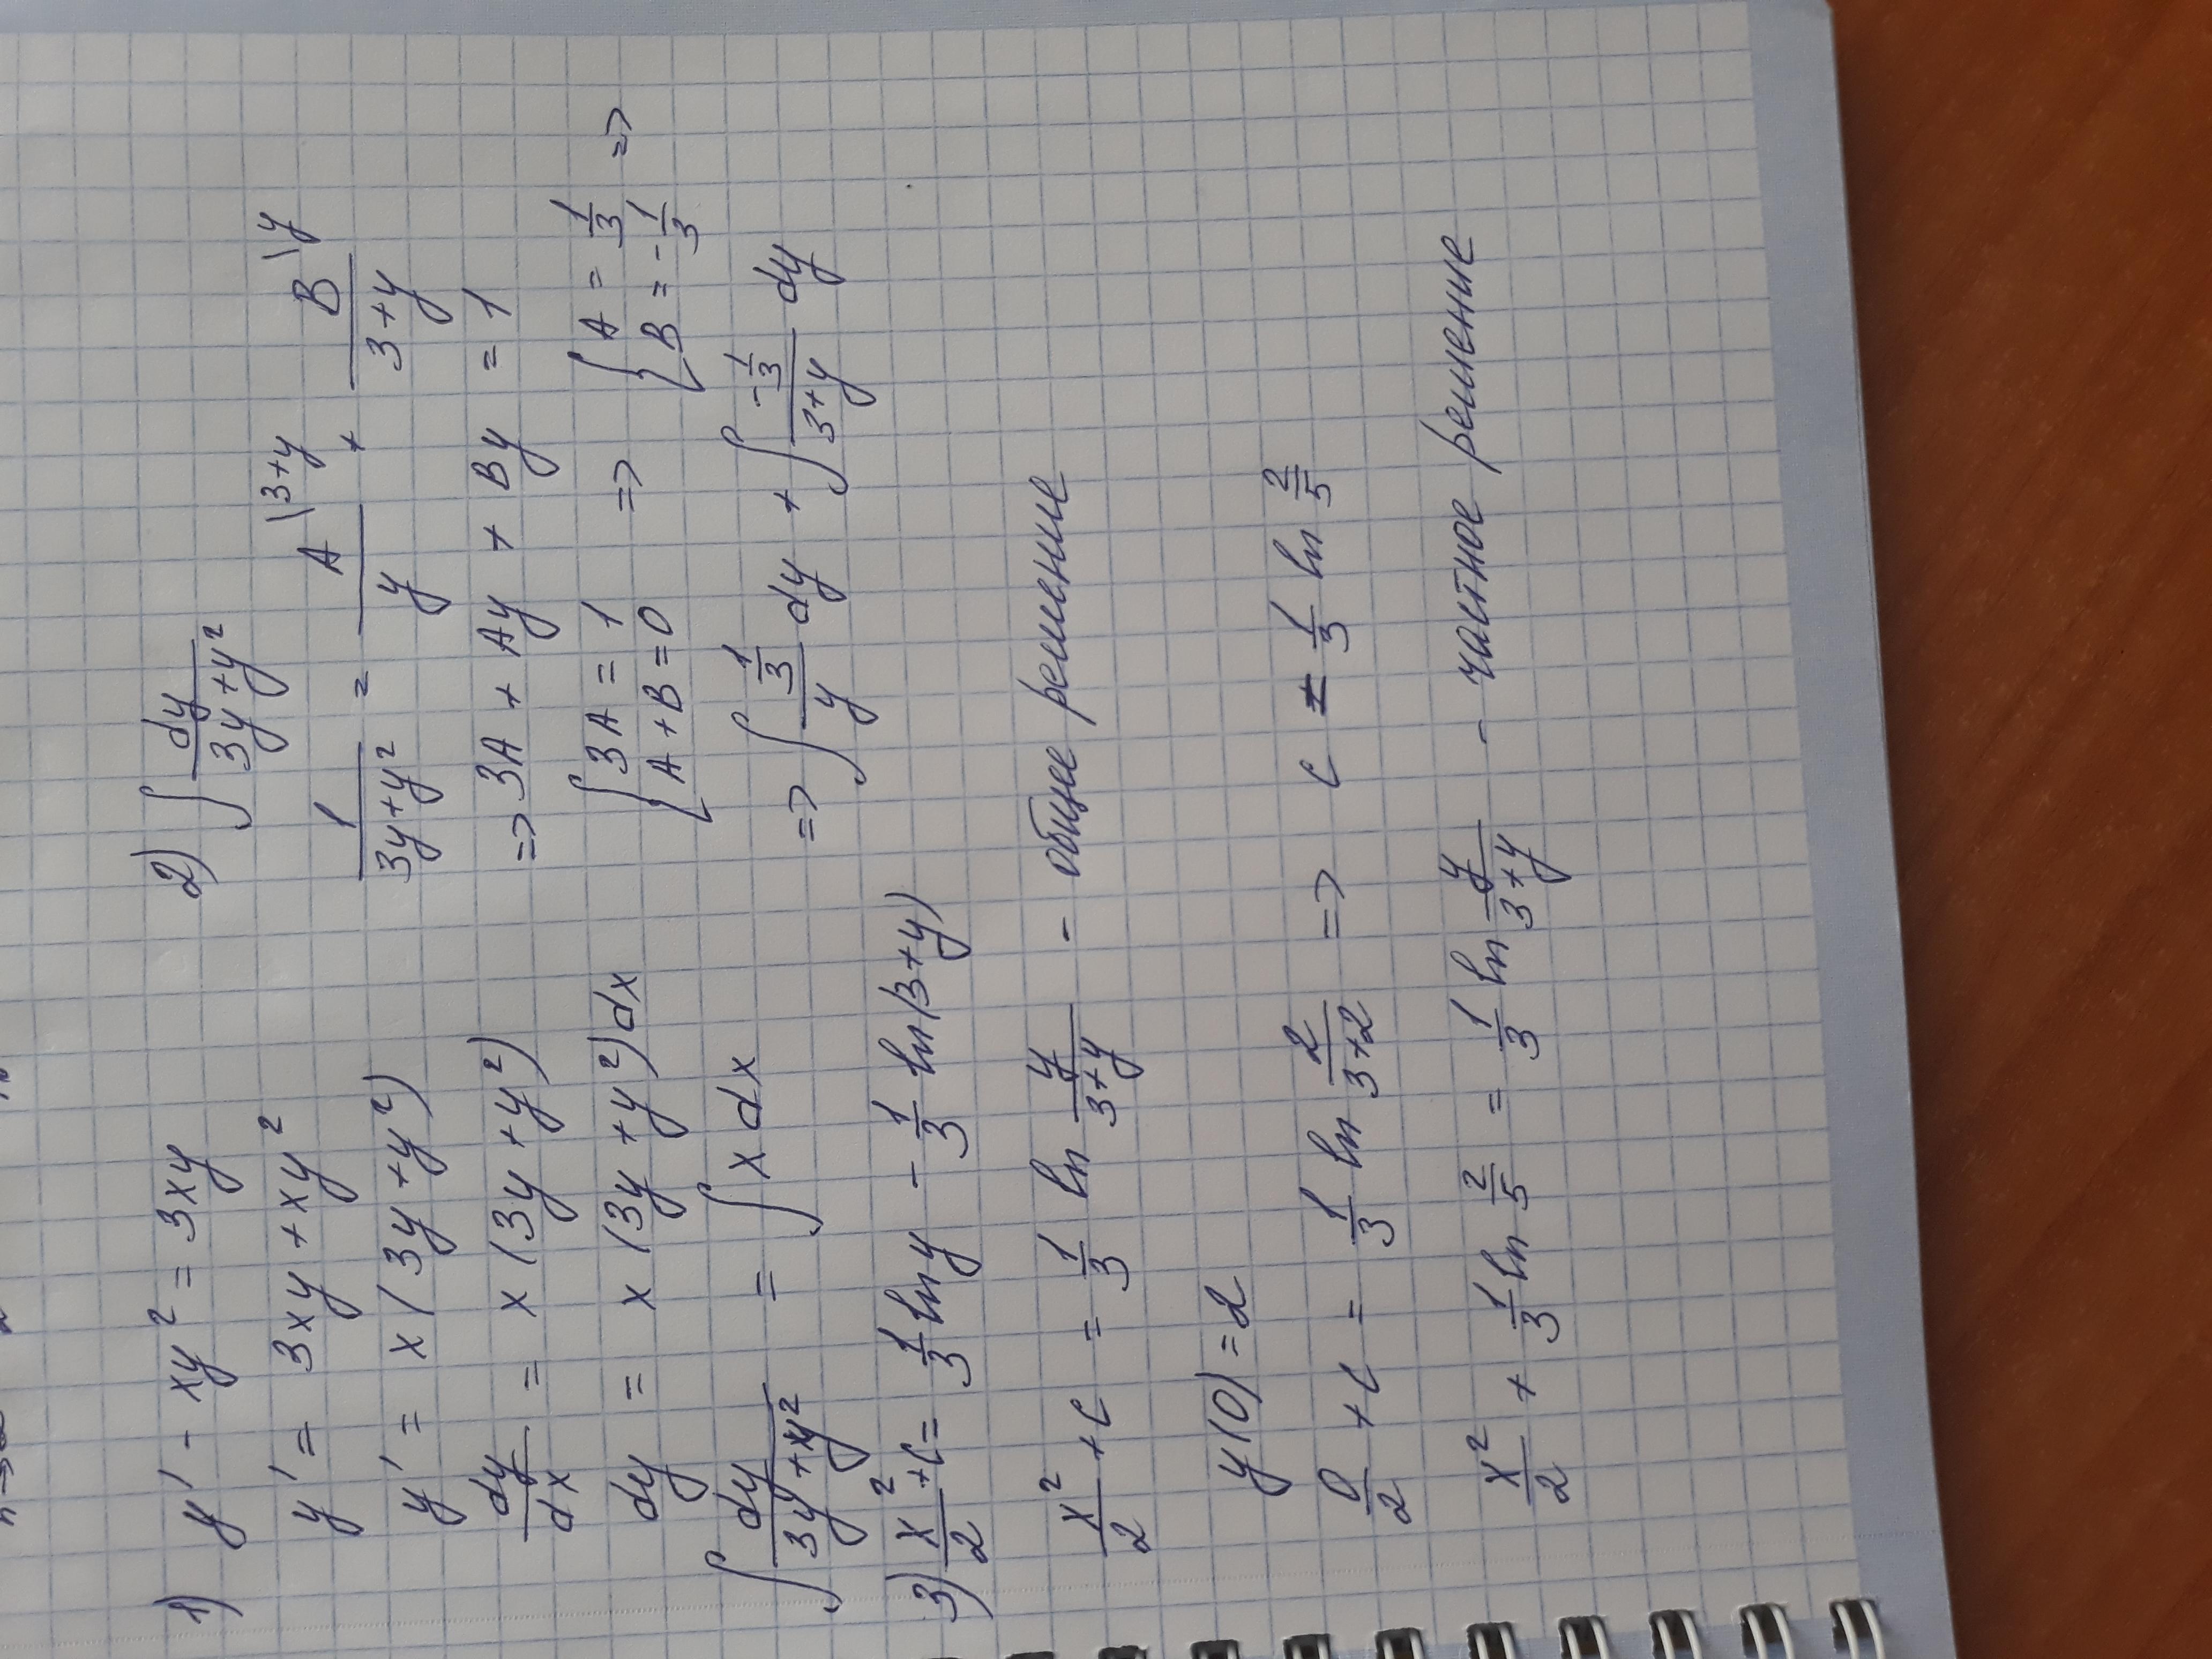 1) y' - xy² = 3xy
y' = 3xy + xy²
y' = x(3y + y²)
dy/dx = x(3y + y²)
dy = x(3y + y²)dx
∫ dy/(3y + xy²) = ∫ x dx
2) ∫ dy/(3y + y²)
1/(3y + y²) = A\3+y / y + B\y / (3+y)
=> 3A + Ay + By = 1
{ 3A = 1 => { A = 1/3 =>
A + B = 0 B = -1/3
=> ∫ (1/3)/y dy + ∫ (-1/3)/(3+y) dy
3) x²/2 + c = 1/3 ln y - 1/3 ln(3+y)
x²/2 + c = 1/3 ln y/(3+y) - общее решение
y(0) = 2
0/2 + c = 1/3 ln 2/(3+2) => c = 1/3 ln 2/5
x²/2 + 1/3 ln 2/5 = 1/3 ln y/(3+y) - частное решение